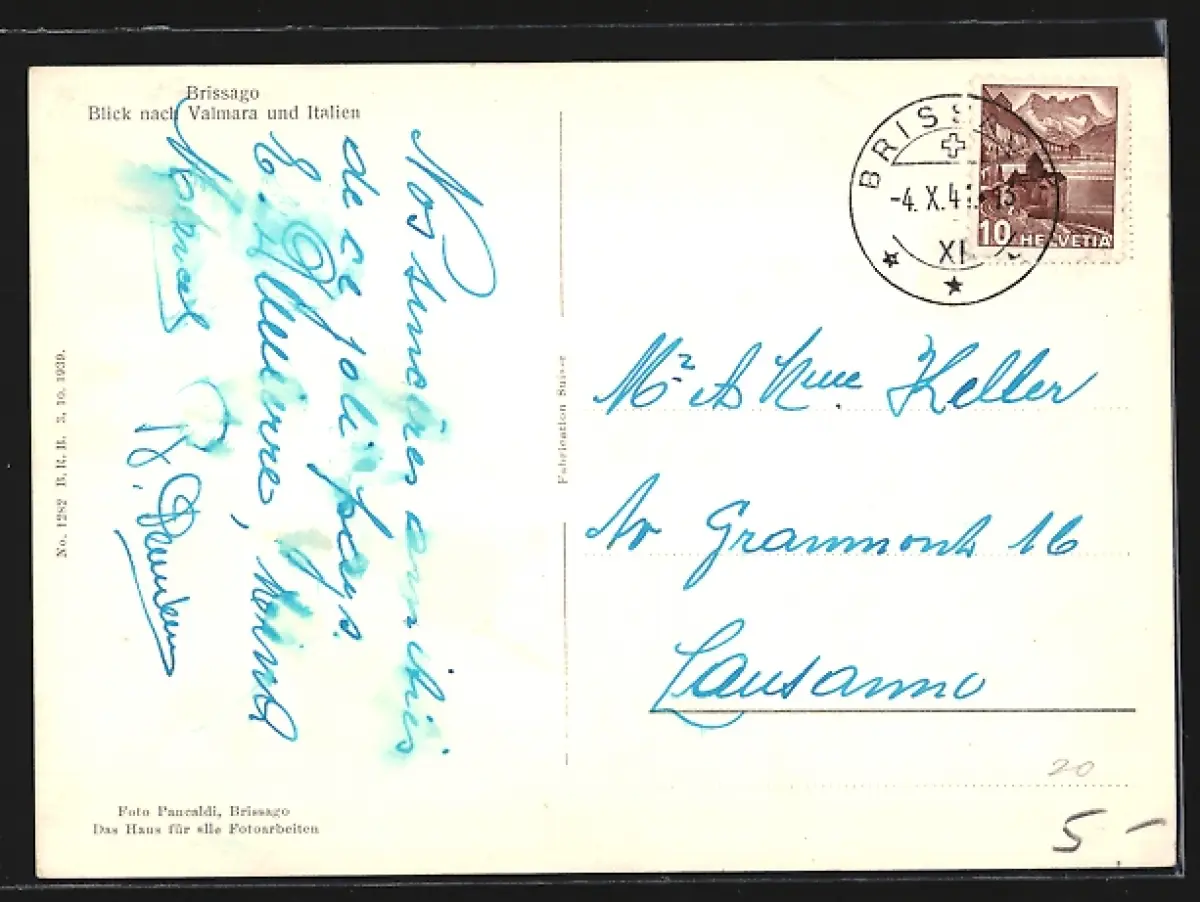 Brissago
Blick nach Valmara und Italien
Nos sincères amitiés
de ce joli pays
E.
R.
No. 1282 B.R.B. 3. 10. 1939.
Foto Pancaldi, Brissago
Das Haus für alle Fotoarbeiten
Fabrication Suisse
BRISSA
-4. X. 4
XI
10 HELVETIA
Mr & Mme Keller
Av Grammont 16
Lausanne
20
5.-